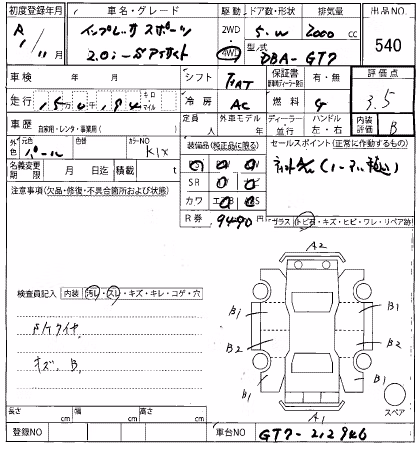 初度登録年月 車名・グレード 駆動 ドア数・形状 排気量 出品NO
インプレッサ スポーツ 2WD 5.W 2000 cc 540
11 2.0i-S アイサイト 4WD 型式 DBA-GT7
車検 年 月 シフト FAT 保証書 有・無 評価点
走行 キロ マイル 冷房 AC 燃料 G 3.5
車歴 自家用・レンタ・事業用( ) 定員 人 外車モデル 年 ディーラー 並行 ハンドル 左・右 内装評価 B
外色 元色 パール 色替 カラーNO K1X 装備品(純正品に限る) セールスポイント(正常に動作するもの)
名義変更期限 月 日迄 積載 t SR
注意事項(欠品・修復・不具合箇所および状態) カワ
R券 9490 円 ガラス(トビ石・キズ・ヒビ・ワレ・リペア跡)
A2
検査員記入 内装(汚レ・スレ・キズ・キレ・コゲ・穴
B1 B1
B2 B2
キズ、B1
B1 B1
スペア
長さ cm 幅 cm 高さ cm A1
登録NO 車台NO GT7-212946